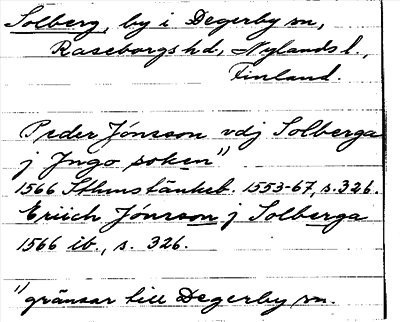 Solberg, by i Degerby sn,
Raseborgs hd, Nylands l.,
Finland.
Peder Jönsson vdj Solberga
j Jngo soken"
1566 Sthms tänkeb. 1553-67, s. 326.
Eriich Jönsson j Solberga
1566 ib., s. 326.
"gränsar till Degerby sn.